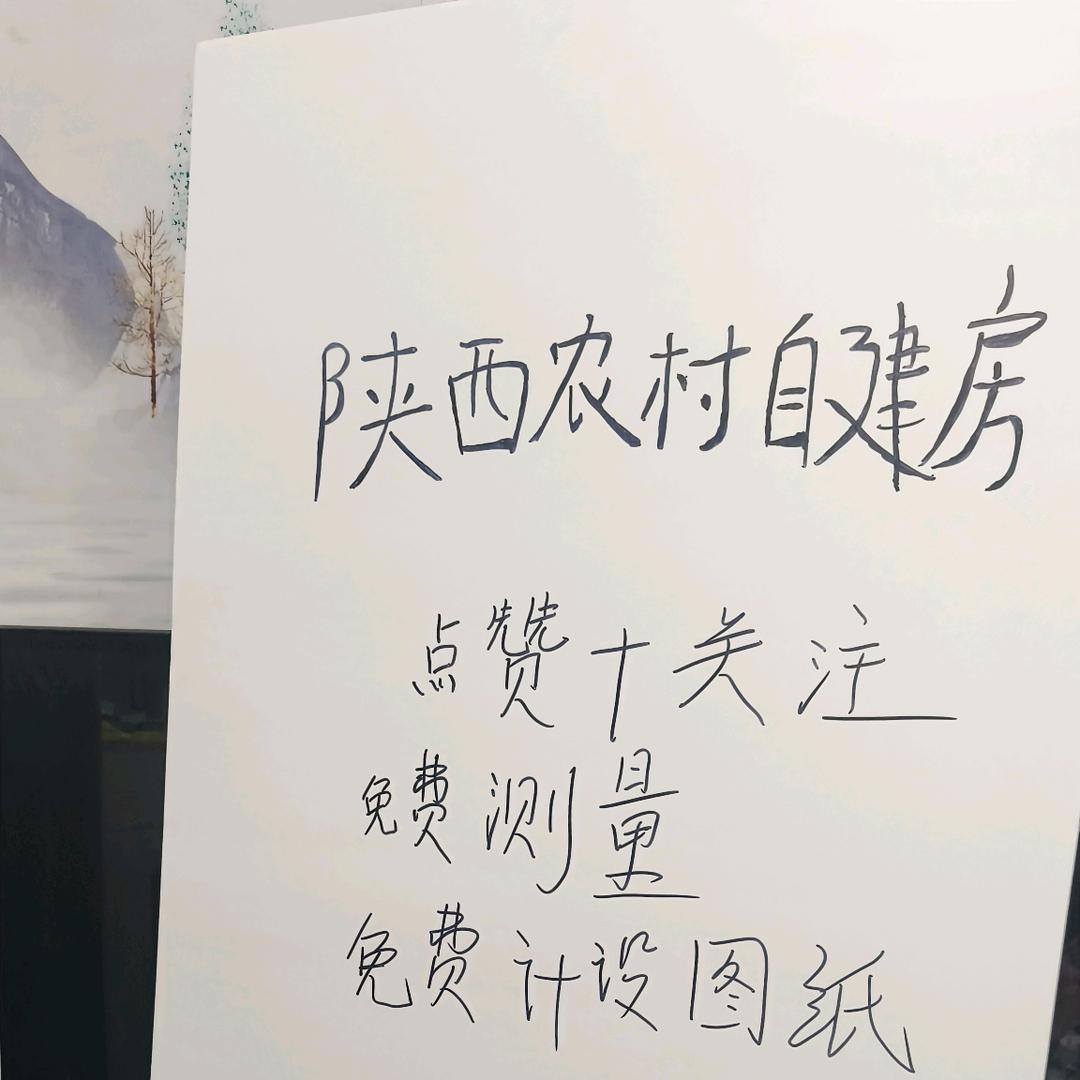 陕西农村自建房
点赞+关注
免费测量
免费计设图纸